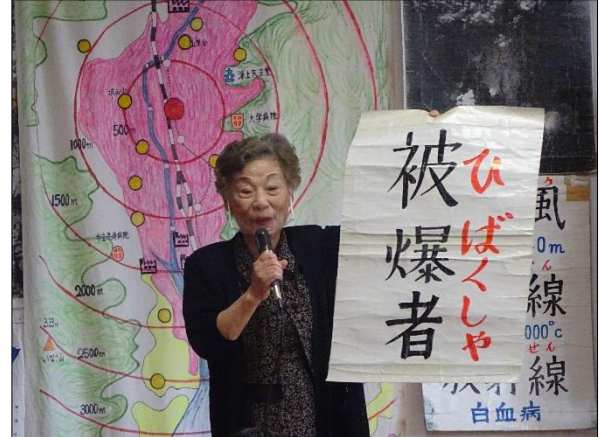 浦上天主堂
大学病院
500m
1000m
1500m
2000m
2500m
3000m
被爆者
ひばくしゃ
風
0m
線
000°C
せん
放射線
白血病